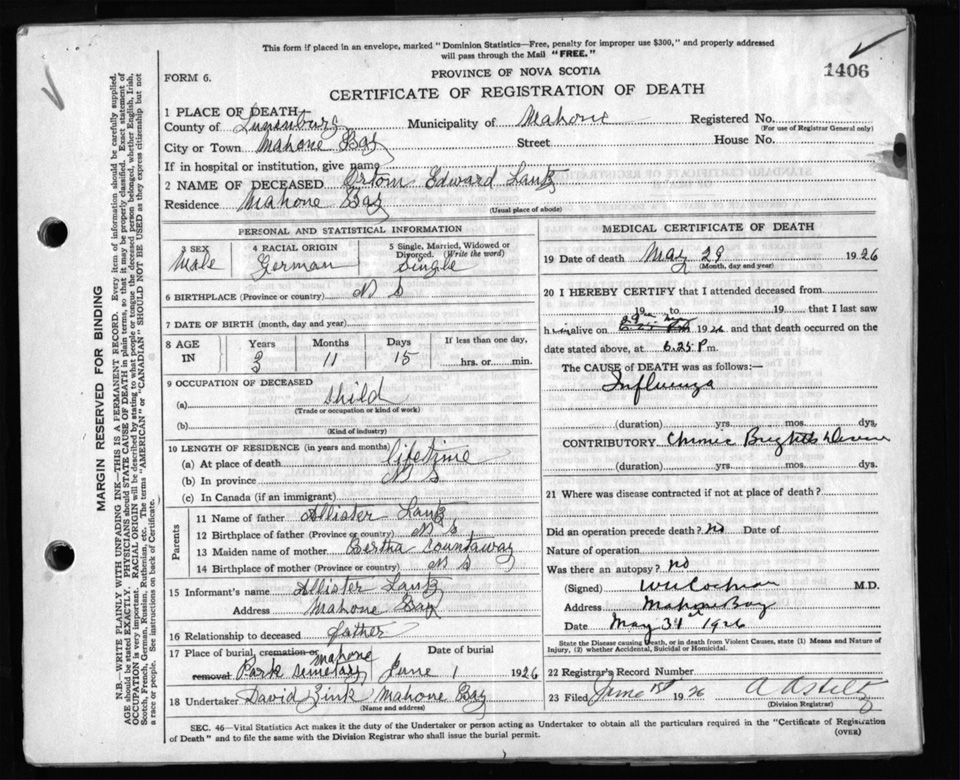 This form if placed in an envelope, marked "Dominion Statistics—Free, penalty for improper use $300," and properly addressed
will pass through the Mail "FREE."
FORM 6.
PROVINCE OF NOVA SCOTIA
1406
CERTIFICATE OF REGISTRATION OF DEATH
1 PLACE OF DEATH
County of Lunenburg Municipality of Mahone Registered No.
(For use of Registrar General only)
City or Town Mahone Bay Street House No.
If in hospital or institution, give name
2 NAME OF DECEASED Edward
Residence Mahone Bay
(Usual place of abode)
PERSONAL AND STATISTICAL INFORMATION
3 SEX 4 RACIAL ORIGIN 5 Single, Married, Widowed or
Divorced. (Write the word)
Male German Single
6 BIRTHPLACE (Province or country) N S
7 DATE OF BIRTH (month, day and year)
8 AGE IN Years Months Days If less than one day,
3 11 15 hrs. or min.
9 OCCUPATION OF DECEASED
(a) Child
(Trade or occupation or kind of work)
(b)
(Kind of industry)
10 LENGTH OF RESIDENCE (in years and months)
(a) At place of death lifetime
(b) In province N S
(c) In Canada (if an immigrant)
Parents
11 Name of father Allister
12 Birthplace of father (Province or country) N S
13 Maiden name of mother Bertha Countaway
14 Birthplace of mother (Province or country) N S
15 Informant's name Allister
Address Mahone Bay
16 Relationship to deceased father
17 Place of burial, cremation or Mahone Date of burial
removal Park Semetary June 1 1926
18 Undertaker David Zink Mahone Bay
(Name and address)
MEDICAL CERTIFICATE OF DEATH
19 Date of death May 29 1926
(Month, day and year)
20 I HEREBY CERTIFY that I attended deceased from
19 to 19 that I last saw
h alive on 1926 and that death occurred on the
date stated above, at 6.25 P m.
The CAUSE OF DEATH was as follows:—
Influenza
(duration) yrs. mos. dys.
CONTRIBUTORY. Chronic Brights Disease
(duration) yrs. mos. dys.
21 Where was disease contracted if not at place of death?
Did an operation precede death? no Date of
Nature of operation
Was there an autopsy? no
(Signed) Cochran M.D.
Address Mahone Bay
Date May 31 1926
State the Disease causing Death, or in death from Violent Causes, state (1) Means and Nature of
Injury, (2) whether Accidental, Suicidal or Homicidal.
22 Registrar's Record Number
23 Filed June 1st 1926
(Division Registrar)
SEC. 46—Vital Statistics Act makes it the duty of the Undertaker or person acting as Undertaker to obtain all the particulars required in the "Certificate of Registration
of Death" and to file the same with the Division Registrar who shall issue the burial permit.
(OVER)
MARGIN RESERVED FOR BINDING
N.B.—WRITE PLAINLY WITH UNFADING INK—THIS IS A PERMANENT RECORD. Every item of information should be carefully supplied.
AGE should be stated EXACTLY. PHYSICIANS should STATE CAUSE OF DEATH in plain terms, so that it may be properly classified. Exact statement of
OCCUPATION is very important. RACIAL ORIGIN will be described by stating to what people or tongue the deceased person belonged, whether English, Irish,
Scotch, French, German, Russian, Ruthenian, etc. The terms "AMERICAN" or "CANADIAN" SHOULD NOT BE USED as they express citizenship but not
a race or people. See instructions on back of Certificate.